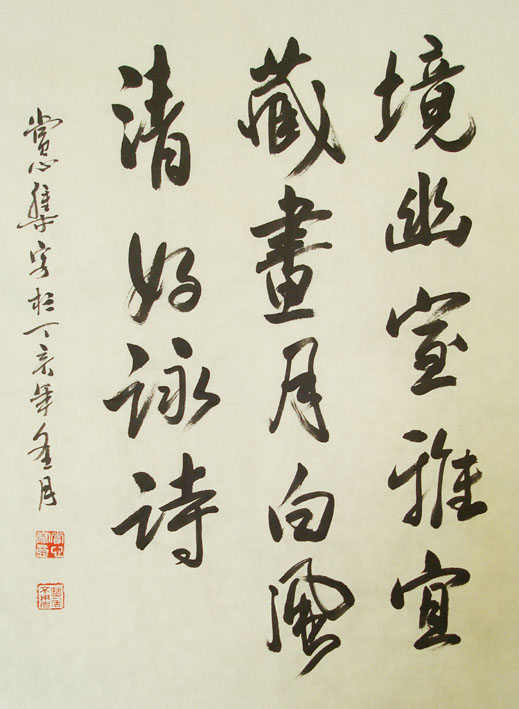 境幽室雅宜
藏畫月白風
清好詠詩
賞心集字於丁亥年冬月